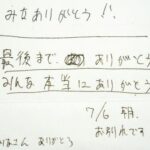 みなありがとう!!
最後まで ありがとう
みんな本当にありがとう
7/6 朝.
お別れです
さん ありがとう